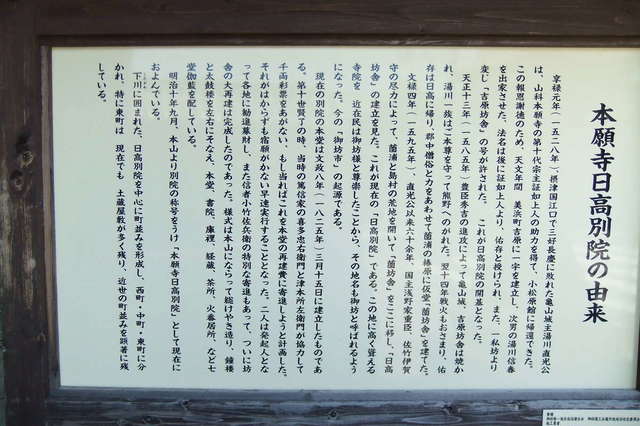 本願寺日高別院の由来
享禄元年(一五二八年)摂津国江口で三好長慶に敗れた亀山城主湯川直光公
は、山科本願寺の第十代宗主証如上人の助力を得て、小松原館に帰還できた。
この報恩謝徳のため、天文年間 美浜町吉原に一宇を建立し、次男の湯川信春
を出家させた。法名は後に証如上人より、佑存と授けられ、また、一私坊より
変じ「吉原坊舎」の号が許された。 これが日高別院の開基となった。
天正十三年(一五八五年)豊臣秀吉の進攻によって亀山城、吉原坊舎は焼か
れ、湯川一族はご本尊を守って熊野へのがれた。翌十四年戦火もおさまり、佑
存は日高に帰り、郡中僧俗と力をあわせて薗浦の椿原に仮堂「薗坊舎」を建てた。
文禄四年(一五九五年)、直光公以来六十余年、国主浅野家重臣、佐竹伊賀
守の尽力によって、薗浦と島村の荒地を開いて「薗坊舎」をここに移し、「日高
坊舎」の建立を見た。これが現在の「日高別院」である。この地に高く聳える
寺院を 近在民は御坊様と尊崇したことから、その地名も御坊と呼ばれるよう
になった。今の「御坊市」の起源である。
現在の別院の本堂は文政八年(一八二五年)三月十五日に建立したものであ
る。第十世賢了の時、当時の篤信家の喜多忠右衛門と津本所左衛門が協力して
千両彩票をあがない、もし当ればこれを本堂の再建費に寄進しようと計画した。
それがはからずも宿願がかない早速実行することとなった。二人は発起人とな
って各地に勧進募財し、また信者小竹佐兵衛の特別な寄進もあって、ついに坊
舎の大再建は完成したのであった。様式は本山にならって総けやき造り、鐘楼
と太鼓楼を左右にそなえ、本堂、書院、庫裡、経蔵、茶所、火番居所、など七
堂伽藍を配している。
明治十年九月、本山より別院の称号をうけ「本願寺日高別院」として現在に
およんでいる。
下川に囲まれた、日高別院を中心に町並みを形成し、西町・中町・東町に分
かれ、特に東町は 現在でも 土蔵屋敷が多く残り、近世の町並みを顕著に残
している。